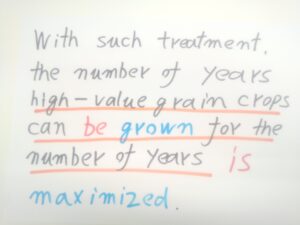 With such treatment,
the number of years
high-value grain crops
can be grown for the
number of years is
maximized.